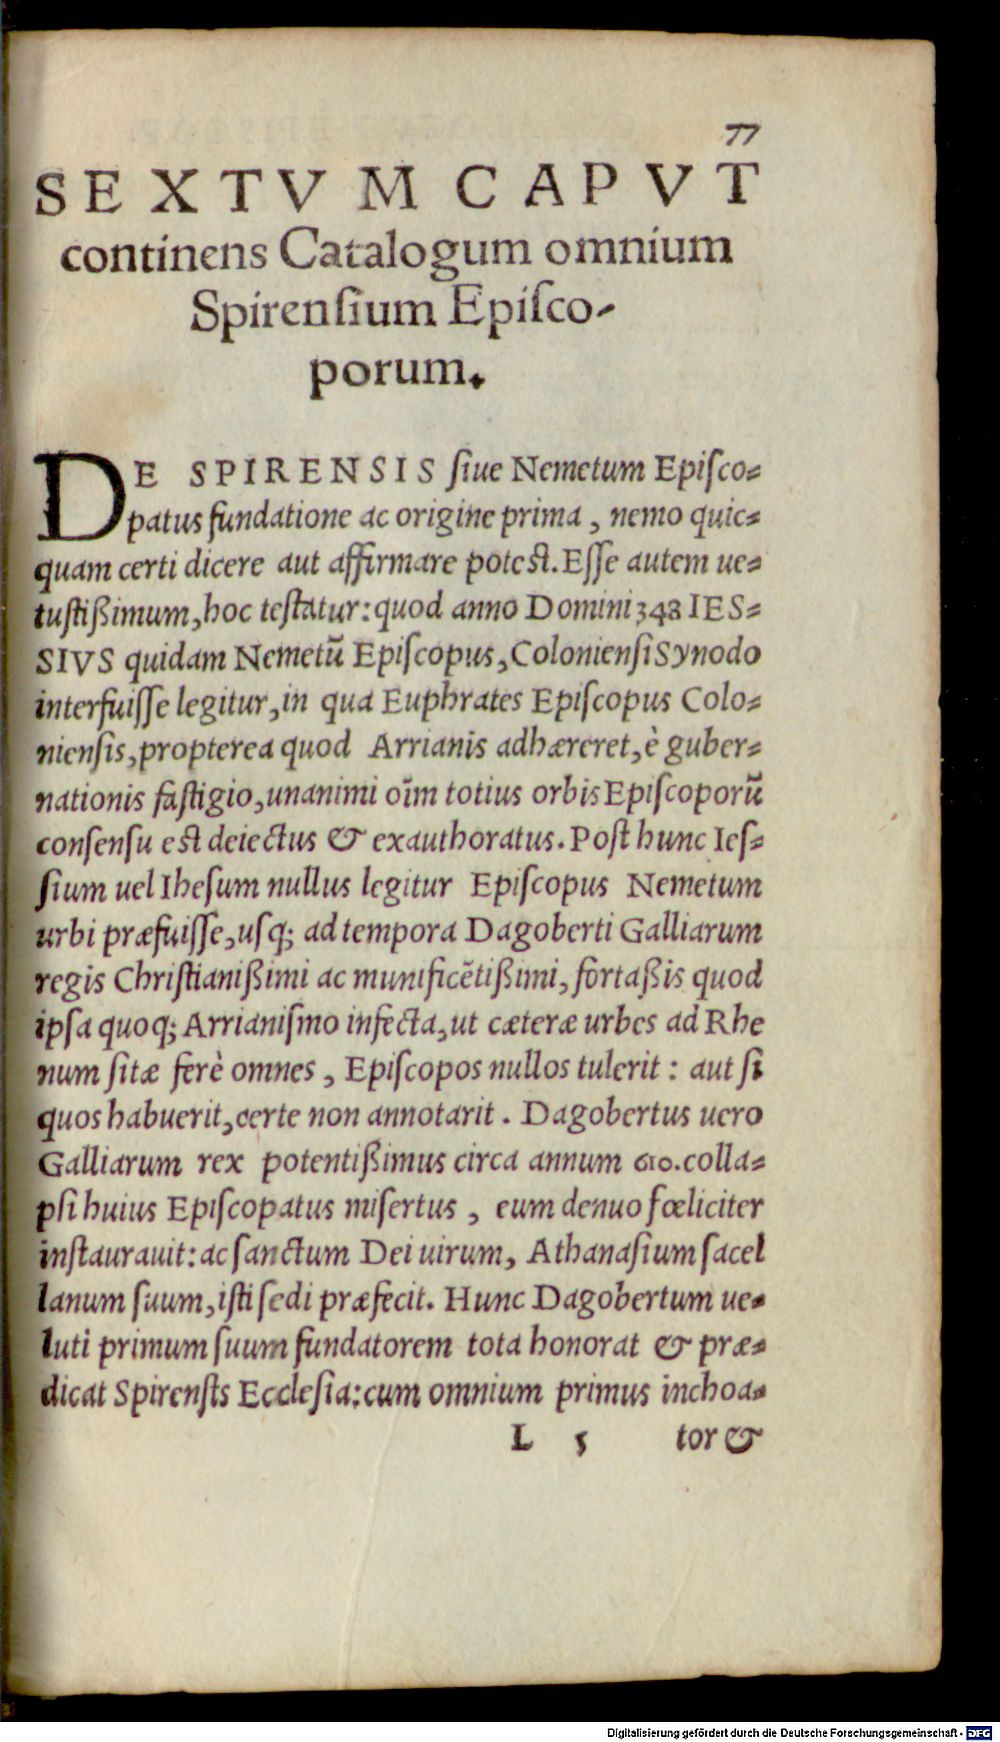 77
SEXTVM CAPVT
continens Catalogum omnium
Spirensium Episco-
porum.
DE SPIRENSIS siue Nemetum Episco-
patus fundatione ac origine prima, nemo quic-
quam certi dicere aut affirmare potest. Esse autem ue-
tustißimum, hoc testatur: quod anno Domini 348 IES-
SIVS quidam Nemetū Episcopus, Coloniensi Synodo
interfuisse legitur, in qua Euphrates Episcopus Colo-
niensis, propterea quod Arrianis adhæreret, è guber-
nationis fastigio, unanimi oīm totius orbis Episcoporū
consensu est deiectus & exauthoratus. Post hunc Ies-
sium uel Ihesum nullus legitur Episcopus Nemetum
urbi præfuisse, usq; ad tempora Dagoberti Galliarum
regis Christianißimi ac munificētißimi, fortaßis quod
ipsa quoq; Arrianismo infecta, ut cæteræ urbes ad Rhe
num sitæ ferè omnes, Episcopos nullos tulerit: aut si
quos habuerit, certe non annotarit. Dagobertus uero
Galliarum rex potentißimus circa annum 610. colla-
psi huius Episcopatus misertus, eum denuo fœliciter
instaurauit: ac sanctum Dei uirum, Athanasium sacel
lanum suum, isti sedi præfecit. Hunc Dagobertum ue-
luti primum suum fundatorem tota honorat & præ-
dicat Spirensis Ecclesia: cum omnium primus inchoa-
L 5 tor &
Digitalisierung gefördert durch die Deutsche Forschungsgemeinschaft - DFG